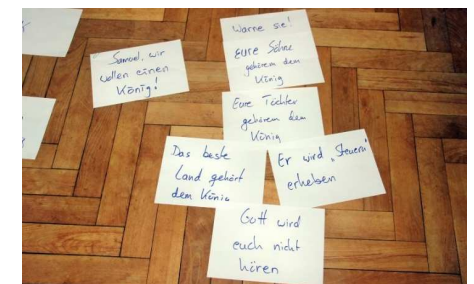 Samuel, wir
wollen einen
König!
Warne sie!
Eure Söhne
gehören dem
König
Eure Töchter
gehören dem
König
Das beste
Land gehört
dem König
Er wird „Steuern“
erheben
Gott wird
euch nicht
hören